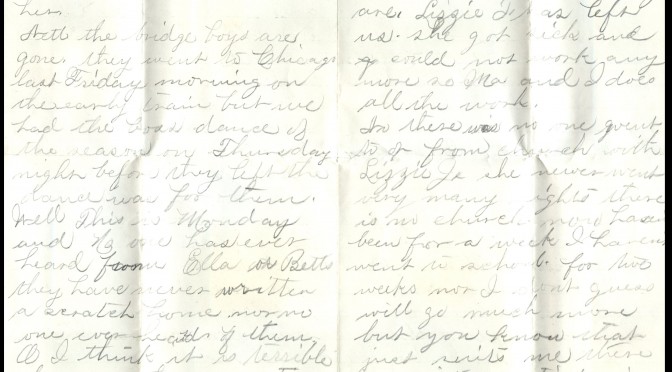 her.
Well the bridge boys are
gone they went to Chicago
last Friday morning on
the early train but we
had the boss dance of
the season on Thursday
night before they left the
dance was for them.
Well This is Monday
and No one has ever
heard from Ella or Betts
they have never written
a scratch home nor no
one ever heards of them.
O I think it is terrible
are. Lizzie J. has left
us. she got sick and
could not work any
more so Ma and I does
all the work.
In there was no one went
to or from church with
Lizzie J. she never went
very many nights there
is no church more has
been for a week I haven
went to school for two
weeks nor I dont guess
will go much more
but you know that
just suits me there